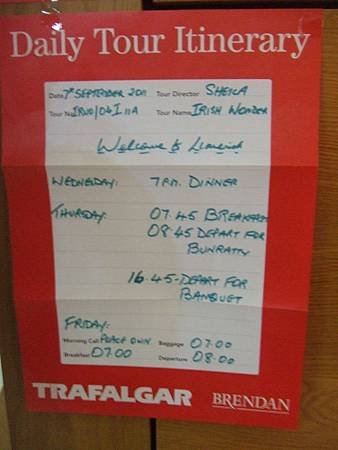 Daily Tour Itinerary
Date 7th SEPTEMBER 2011 Tour Director SHEILA
Tour No IRWO/04I 11A Tour Name IRISH WONDER
Welcome to Limerick
WEDNESDAY: 7PM. DINNER
THURSDAY: 07.45 BREAKFAST
08.45 DEPART FOR
BUNRATTY
16.45-DEPART FOR
BANQUET
FRIDAY:
Morning Call PLACE OWN Baggage 07.00
Breakfast 07.00 Departure 08.00
TRAFALGAR BRENDAN